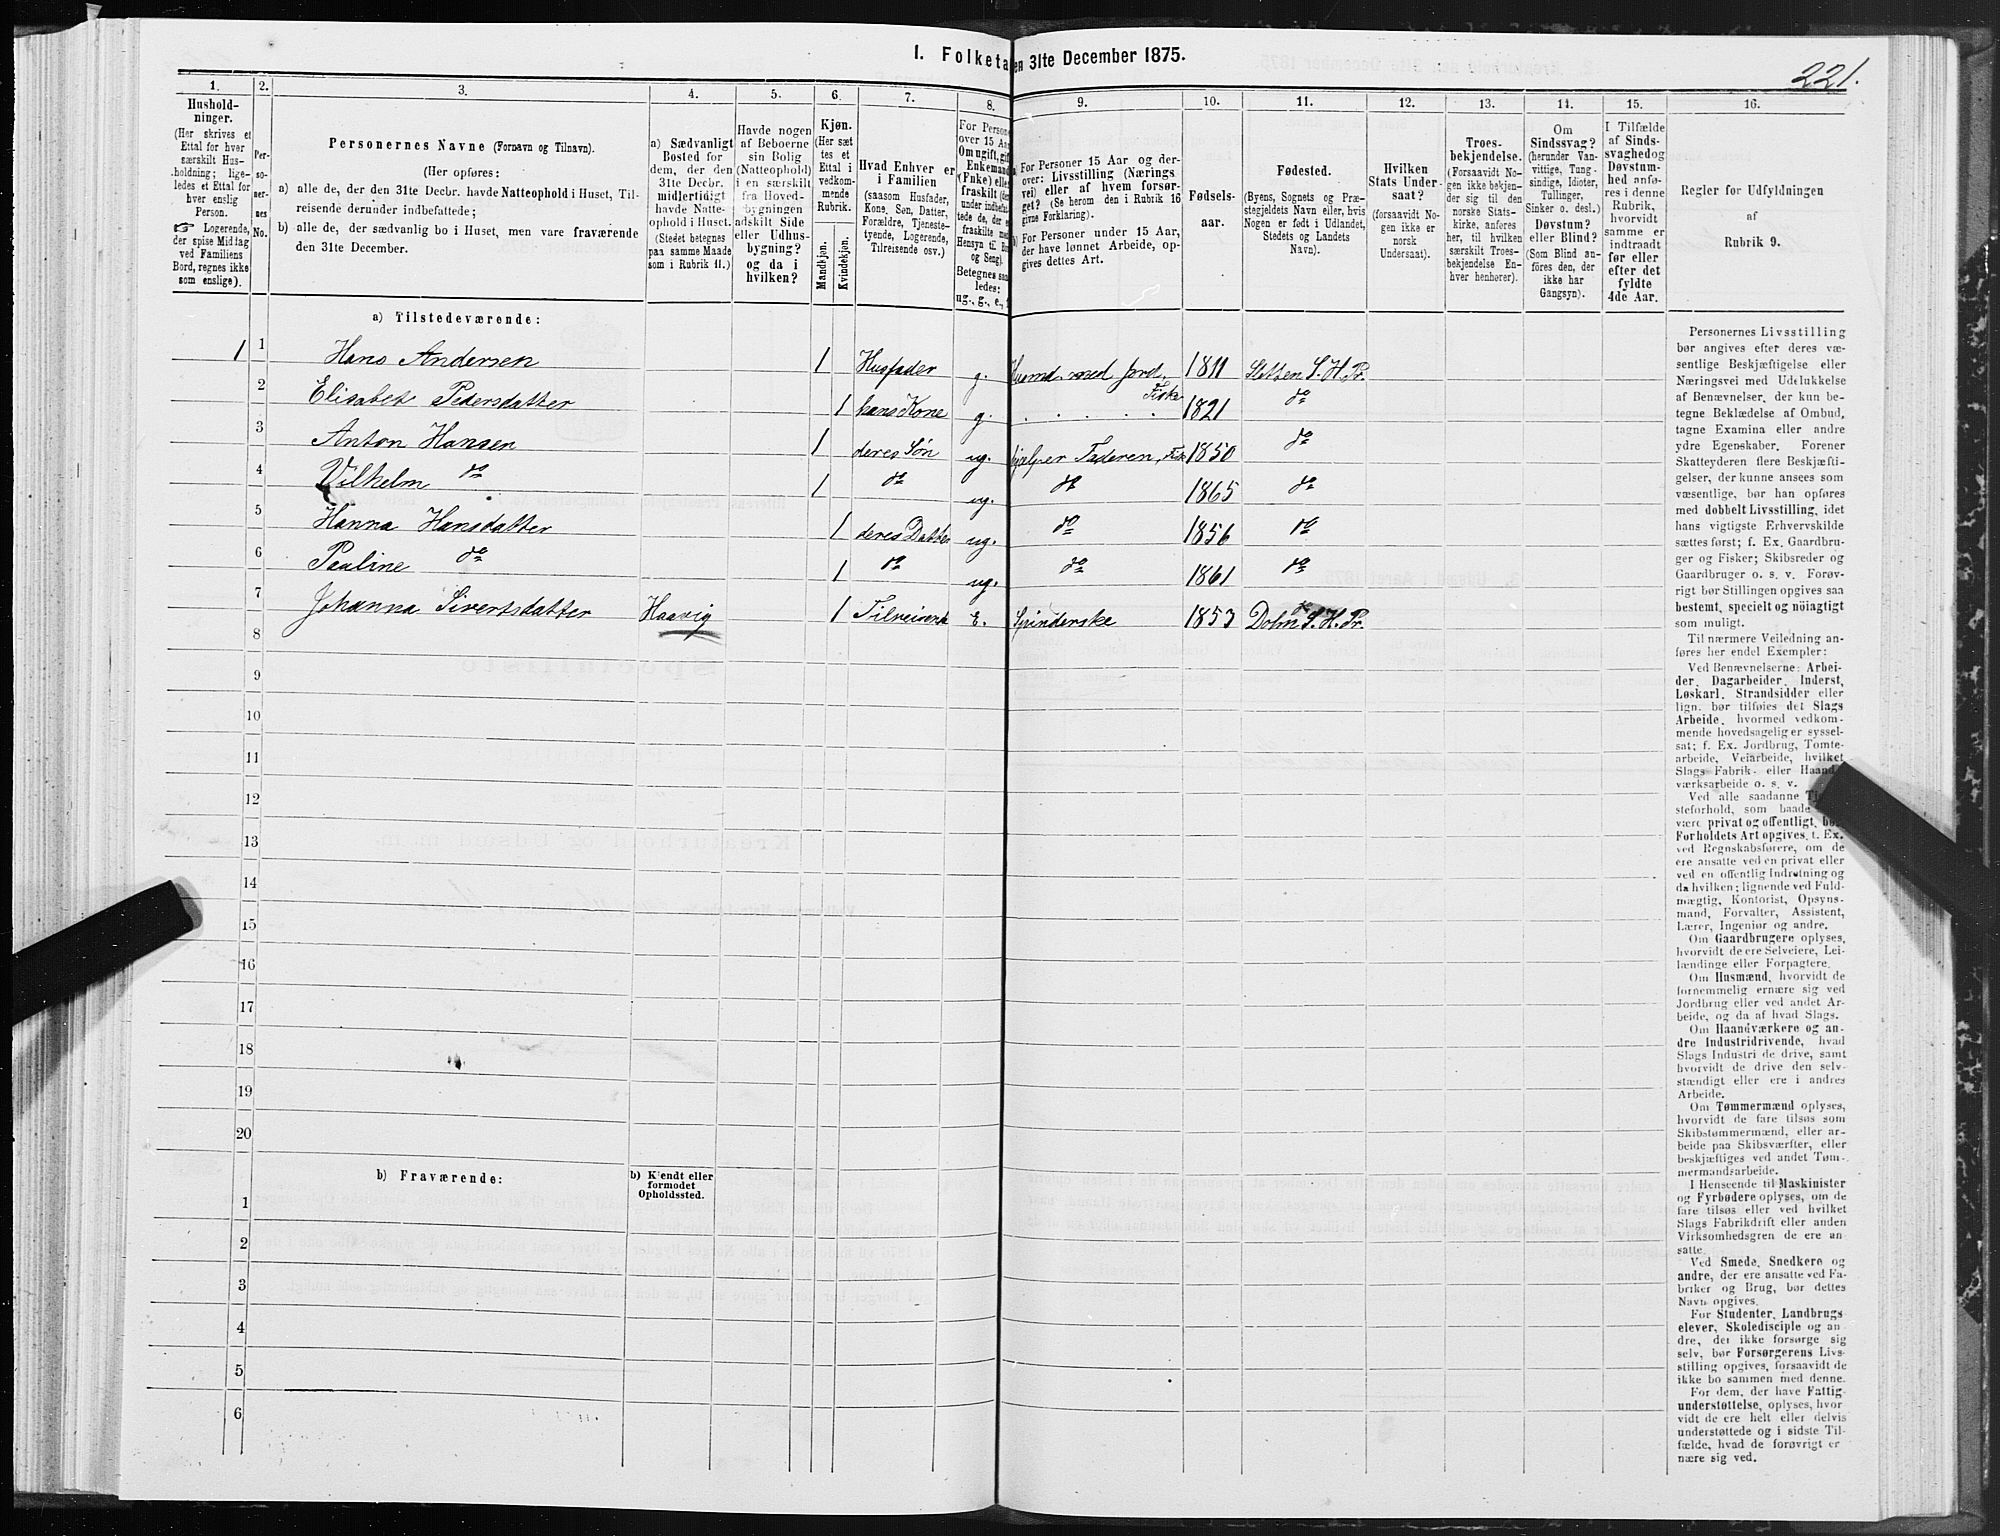 1. Folketa en 31te December 1875.
221.
1.
Hushold-
ninger.
(Her skrives et
Ettal for hver
særskilt Hus-
holdning; lige-
ledes et Ettal for
hver enslig
Person.
Logerende,
der spise Middag
ved Familiens
Bord, regnes ikke
som enslige).
2.
Per-
so-
ner-
nes
No.
3.
Personernes Navne (Fornavn og Tilnavn).
(Her opføres:
a) alle de, der den 31te Decbr. havde Natteophold i Huset, Til-
reisende derunder indbefattede;
b) alle de, der sædvanlig bo i Huset, men vare fraværende
den 31te December.
4.
a) Sædvanligt
Bosted for
dem, der den
31te Decbr.
midlertidigt
havde Natte-
ophold i Huset.
(Stedet betegnes
paa samme Maade
som i Rubrik 11.)
5.
Havde nogen
af Beboerne
sin Bolig
(Natteophold)
i en særskilt
fra Hoved-
bygningen
adskilt Side
eller Udhus-
bygning?
og da i
hvilken?
6.
Kjøn.
(Her sæt
tes et
Ettal i
vedkom-
mende
Rubrik.
Mandkjøn.
Kvindekjøn.
7.
Hvad Enhver er
i Familien
(saasom Husfader,
Kone, Søn, Datter,
Forældre, Tjeneste-
tyende, Logerende,
Tilreisende osv.)
8.
For Persone
over 15 Aar
Om ugift, gif
Enkemand
(Enke) elle
fraskilt (der
under indbefat
tede de, der e
fraskilte med
Hensyn til Bo
og Seng).
Betegnes saa
ledes:
ug., g., e.,
9.
For Personer 15 Aar og der-
over: Livsstilling (Nærings
vei) eller af hvem forsør-
get? (Se herom den i Rubrik 16
givne Forklaring).
For Personer under 15 Aar,
der have lønnet Arbeide, op-
gives dettes Art.
10.
Fødsels-
aar.
11.
Fødested.
(Byens, Sognets og Præ-
stegjeldets Navn eller, hvis
Nogen er født i Udlandet,
Stedets og Landets
Navn).
12.
Hvilken
Stats Under-
saat?
(forsaavidt No-
gen ikke er
norsk
Undersaat).
13.
Troes-
bekjendelse.
(Forsaavidt No-
gen ikke bekjen-
der sig til den
norske Stats-
kirke, anføres
her, til hvilken
særskilt Troes-
bekjendelse En-
hver henhører).
14.
Om
Sindssvag?
(herunder Van-
vittige, Tung-
sindige, Idioter,
Tullinger,
Sinker o. desl.)
Døvstum?
eller Blind?
(Som Blind an-
føres den, der
ikke har
Gangsyn).
15.
I Tilfælde
af Sinds-
svaghed og
Døvstum-
hed anfø-
res i denne
Rubrik,
hvorvidt
samme er
indtraadt
før eller
efter det
fyldte
4de Aar.
16.
Regler for Udfyldningen
af
Rubrik 9.
a) Tilstedeværende:
1 1 Hans Andersen 1 Husfader g. Husmd. med Jord, Fisker 1811 Sletten S. H. Pr.
2 Elisabet Pedersdatter 1 hans Kone g. . . . . . 1821 do
3 Anton Hansen 1 deres Søn ug. hjælper Faderen, Fisk 1850 do
4 Vilhelm do 1 do ug. do 1865 do
5 Hanna Hansdatter 1 deres Datter ug. do 1856 do
6 Pauline do 1 do ug. do 1861 do
7 Johanna Sivertsdatter Haavig 1 Tilreisende E. Spinderske 1853 S. H. Pr.
8
9
10
11
12
13
14
15
16
17
18
19
20
b) Fraværende:
b) Kjendt eller
formodet
Opholdssted.
1
2
3
4
5
6
Personernes Livsstilling
bør angives efter deres væ-
sentlige Beskjæftigelse eller
Næringsvei med Udelukkelse
af Benævnelser, der kun be-
tegne Beklædelse af Ombud,
tagne Examina eller andre
ydre Egenskaber. Forener
Skatteyderen flere Beskjæfti-
gelser, der kunne ansees som
væsentlige, bør han opføres
med dobbelt Livsstilling, idet
hans vigtigste Erhvervskilde
sættes først; f. Ex. Gaardbru-
ger og Fisker; Skibsreder og
Gaardbruger o. s. v. Forøv-
rigt bør Stillingen opgives saa
bestemt, specielt og nöiagtigt
som muligt.
Til nærmere Veiledning an-
føres her endel Exempler:
Ved Benævnelserne: Arbei-
der, Dagarbeider, Inderst,
Løskarl, Strandsidder eller
lign. bør tilføies det Slags
Arbeide, hvormed vedkom-
mende hovedsagelig er syssel-
sat; f. Ex. Jordbrug, Tomte-
arbeide, Veiarbeide, hvilket
Slags Fabrik- eller Haand-
værksarbeide o. s. v.
Ved alle saadanne Tje
steforhold, som baade
være privat og offentligt, bør
Forholdets Art opgives, t. Ex.
ved Regnskabsførere, om de
ere ansatte ved en privat eller
ved en offentlig Indretning og
da hvilken; lignende ved Fuld-
mægtig, Kontorist, Opsyns-
mand, Forvalter, Assistent,
Lærer, Ingeniør og andre.
Om Gaardbrugere oplyses,
hvorvidt de ere Selveiere, Lei-
lændinge eller Forpagtere.
Om Husmænd, hvorvidt de
fornemmelig ernære sig ved
Jordbrug eller ved andet Ar-
beide, og da af hvad Slags.
Om Haandværkere og an-
dre Industridrivende, hvad
Slags Industri de drive, samt
hvorvidt de drive den selv-
stændigt eller ere i andres
Arbeide.
Om Tømmermænd oplyses,
hvorvidt de fare tilsøs som
Skibstømmermænd, eller ar-
beide paa Skibsværfter, eller
beskjæftiges ved andet Tøm-
mermandsarbeide.
I Henseende til Maskinister
og Fyrbødere oplyses, om de
fare tilsøs eller ved hvilket
Slags Fabrikdrift eller anden
Virksomhedsgren de ere an-
satte.
Ved Smede, Snedkere og
andre, der ere ansatte ved Fa-
briker og Brug, bør dettes
Navn opgives.
For Studenter, Landbrugs
elever, Skoledisciple og an-
dre, der ikke forsørge sig
selv, bør Forsørgerens Livs-
stilling opgives, forsaavidt de
ikke bo sammen med denne.
For dem, der have Fattig-
understøttelse, oplyses, hvor-
vidt de ere helt eller delvis
understøttede og i sidste Til-
fælde, hvad de forøvrigt er-
nære sig ved.